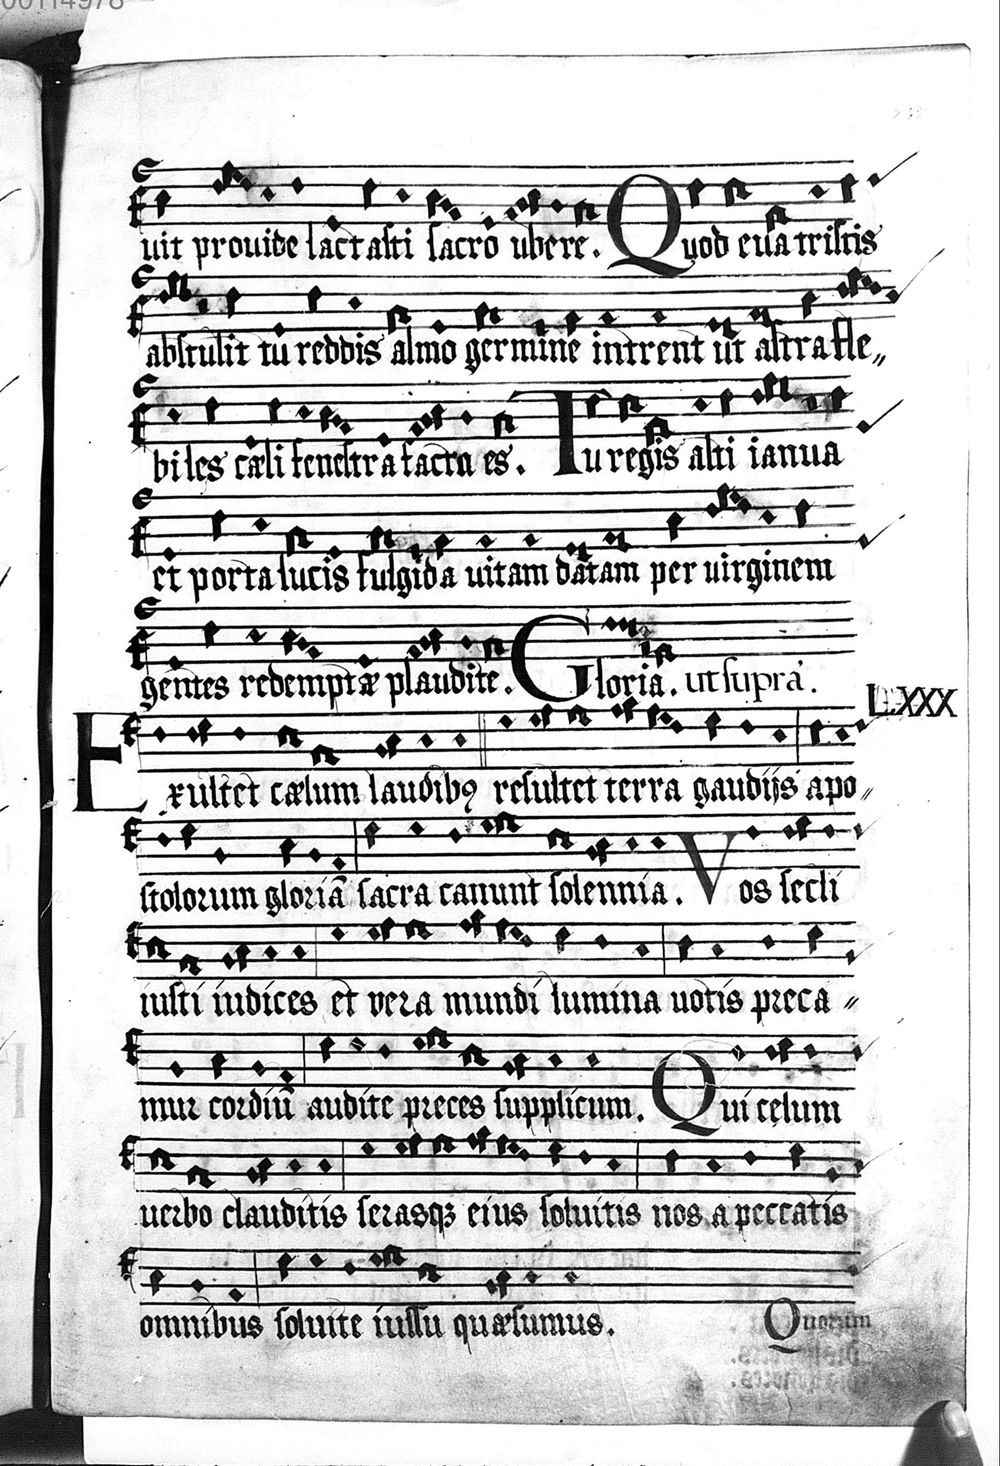 00114978
uit prouide lactasti sacro ubere. Quod eua tristis
abstulit tu reddis almo germine intrent ut astra fle„
biles cæli fenestra facta es. Tu regis alti ianua
et porta lucis fulgida uitam datam per uirginem
gentes redemptæ plaudite. Gloria. ut supra.
LXXX
Exultet cælum laudibꝰ resultet terra gaudijs apo„
stolorum gloriā sacra canunt solennia. Vos secli
iusti iudices et vera mundi lumina uotis preca„
mur cordiū audite preces supplicum. Qui celum
uerbo clauditis serasqꝫ eius soluitis nos a peccatis
omnibus soluite iussu quæsumus.
Quorum